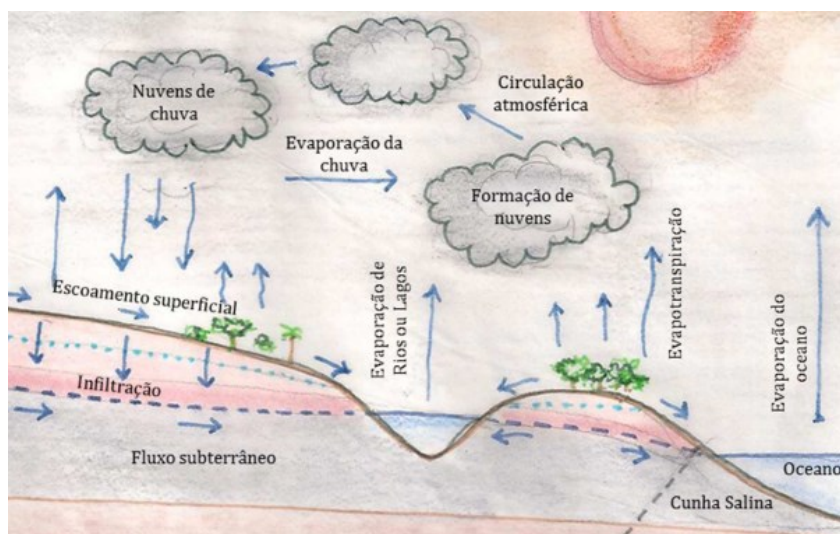 Nuvens de
chuva
Circulação
atmosférica
Evaporação da
chuva
Formação de
nuvens
Escoamento superficial
Evaporação de
Rios ou Lagos
Evapotranspiração
Evaporação do
oceano
Infiltração
Fluxo subterrâneo
Oceano
Cunha Salina